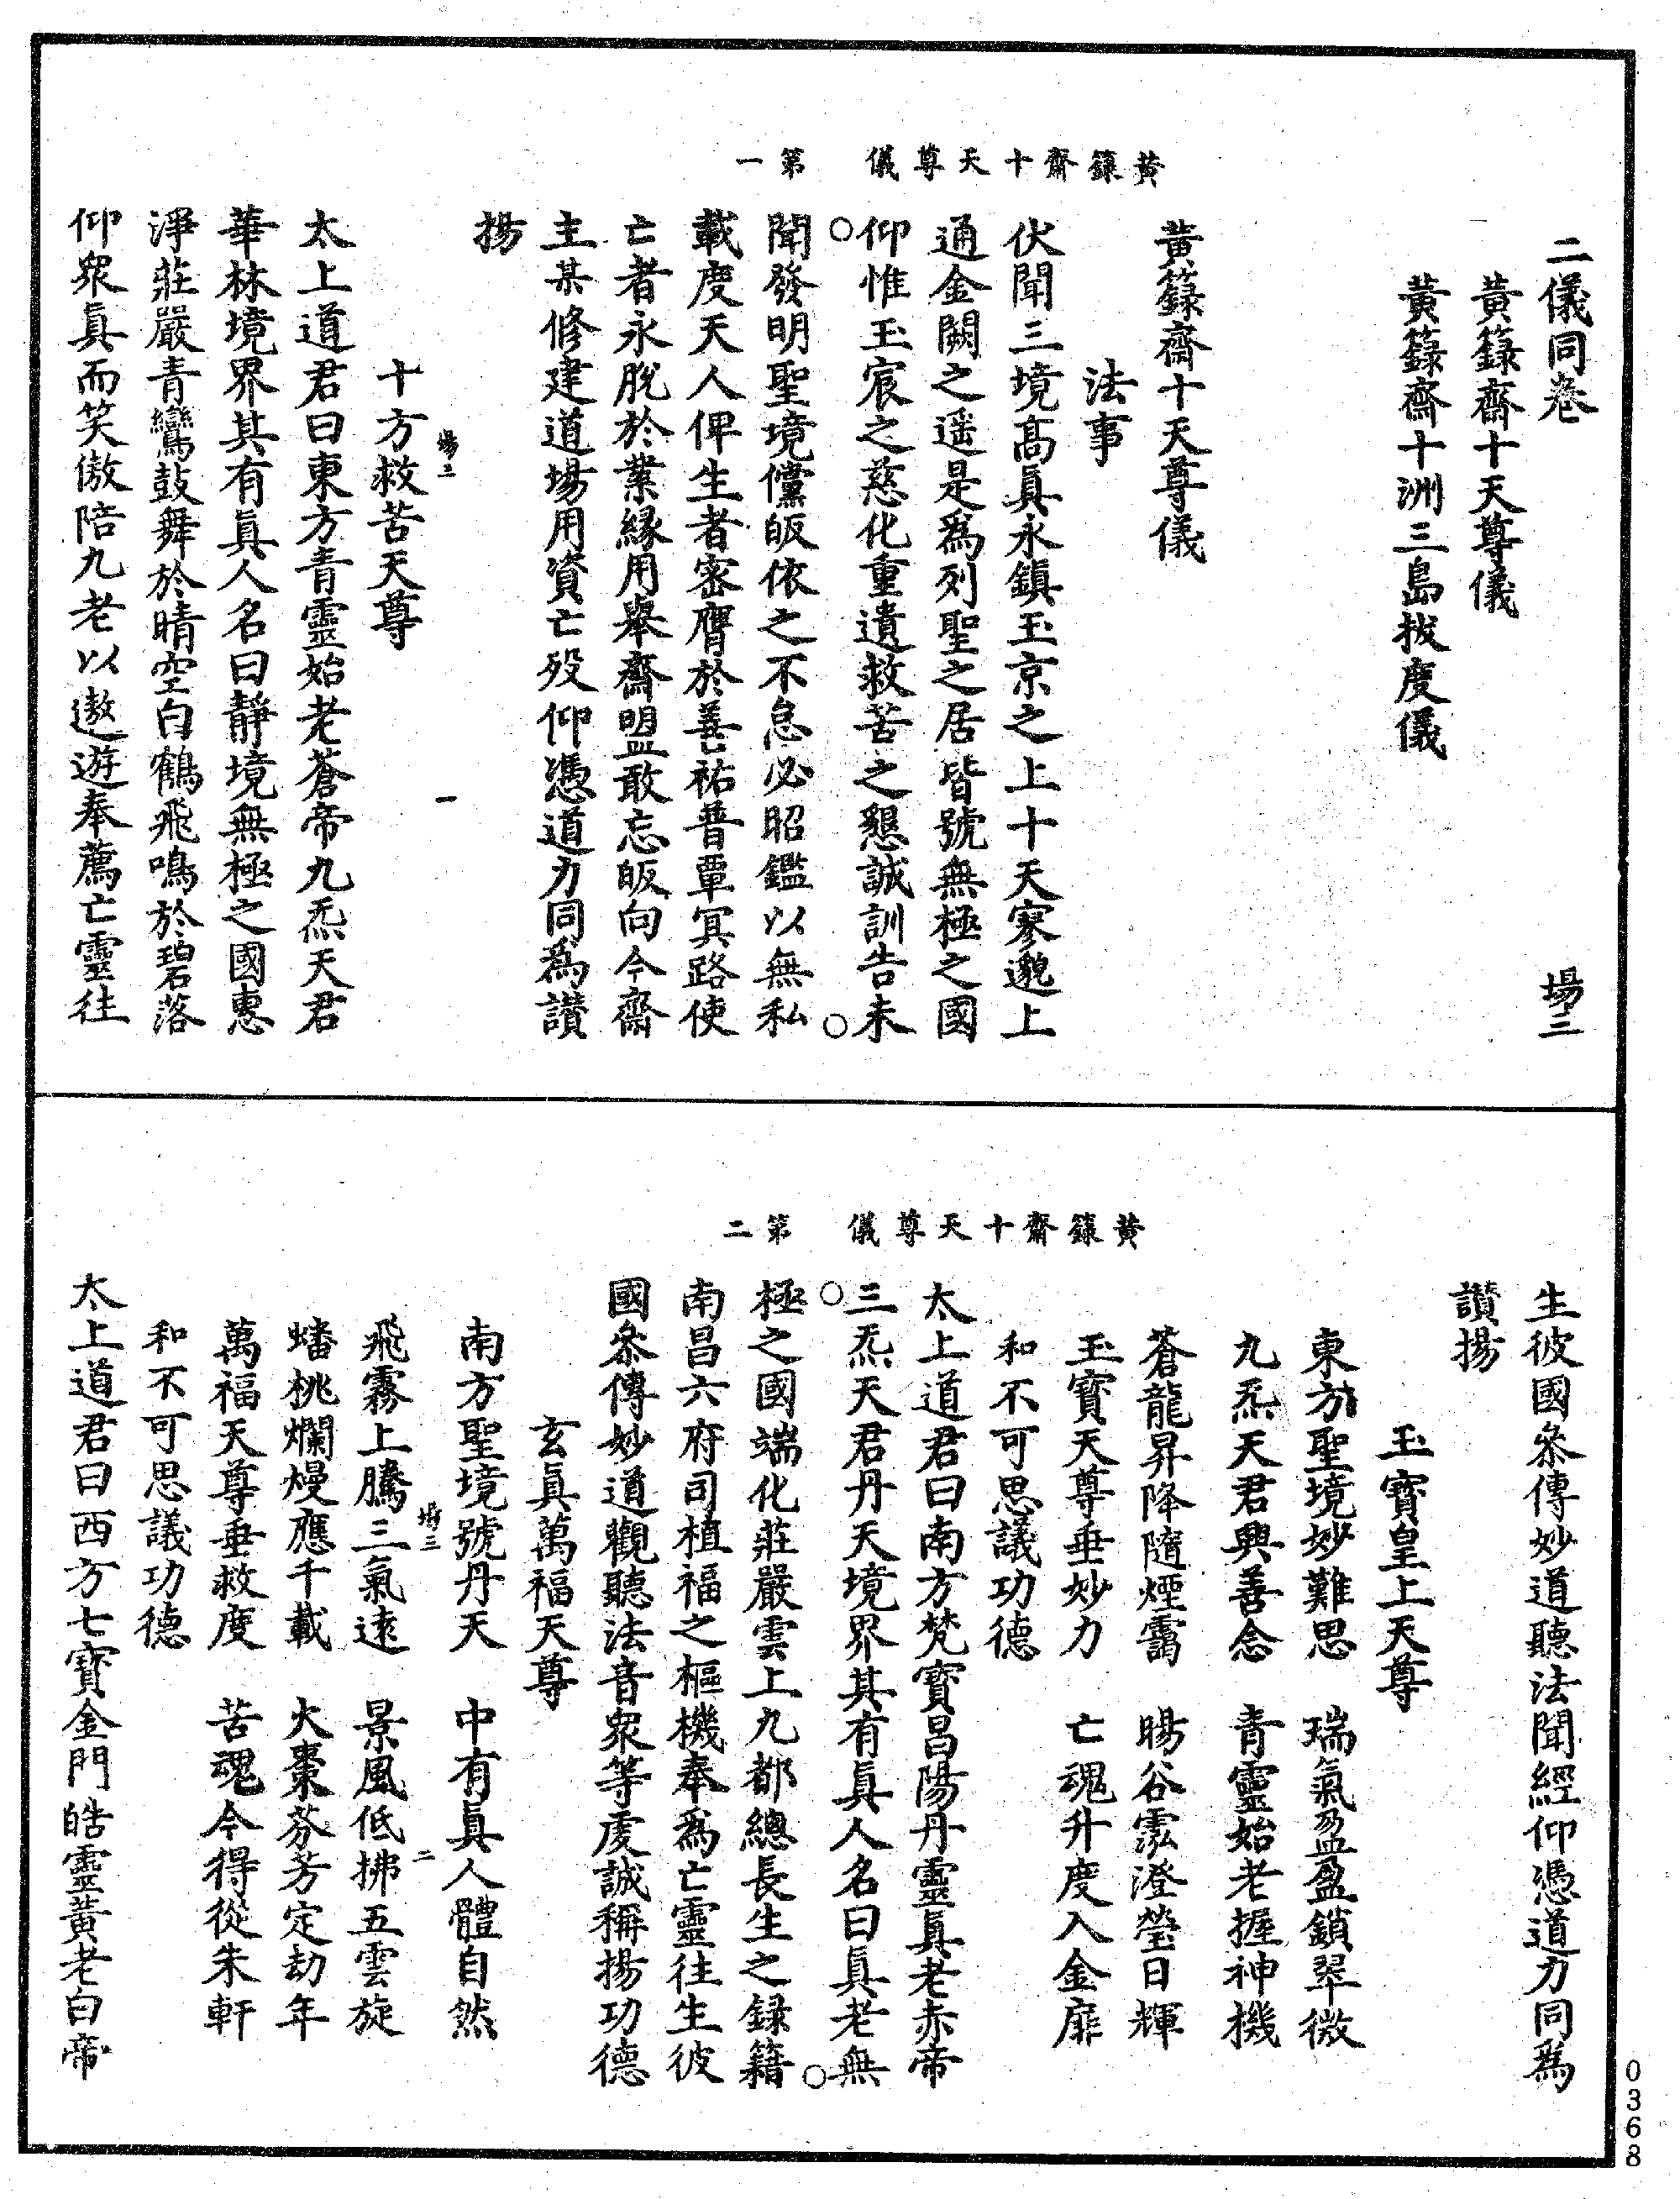 二儀同卷 場二
黃籙齋十天尊儀
黃籙齋十洲三島拔度儀
黃籙齋十天尊儀 第一
黃籙齋十天尊儀
法事
伏聞三境高眞永鎮玉京之上十天寥邈上
通金闕之遥是爲列聖之居皆號無極之國
仰惟玉宸之慈化重遺救苦之懇誠訓告未
聞發明聖境儻皈依之不怠必昭鑑以無私
載度天人俾生者密膺於善祐普覃冥路使
亡者永脫於業緣用舉齋盟敢忘皈向今齋
主某修建道場用資亡歿仰憑道力同爲讚
揚
場二 一
十方救苦天尊
太上道君曰東方青靈始老蒼帝九炁天君
華林境界其有眞人名曰靜境無極之國惠
淨莊嚴青鸞鼓舞於晴空白鶴飛鳴於碧落
仰衆眞而笑傲陪九老以遨遊奉薦亡靈往
生彼國叅傳妙道聽法聞經仰憑道力同爲
讚揚
玉寶皇上天尊
東方聖境妙難思 瑞氣盈盈鎖翠微
九炁天君興善念 青靈始老握神機
蒼龍昇降隨煙靄 暘谷澐澄瑩日輝
玉寶天尊垂妙力 亡魂升度入金扉
和不可思議功德
黃籙齋十天尊儀 第二
太上道君曰南方梵寶昌陽丹靈眞老赤帝
三炁天君丹天境界其有眞人名曰眞老無
極之國端化莊嚴雲上九都總長生之録籍
南昌六府司植福之樞機奉爲亡靈往生彼
國叅傳妙道觀聽法音衆等虔誠稱揚功德
玄眞萬福天尊
南方聖境號丹天 中有眞人體自然
場三 二
飛霧上騰三氣遠 景風低拂五雲旋
蟠桃爛熳應千載 火棗芬芳定劫年
萬福天尊垂救度 苦魂今得從朱軒
和不可思議功德
太上道君曰西方七寶金門皓靈黃老白帝
0368